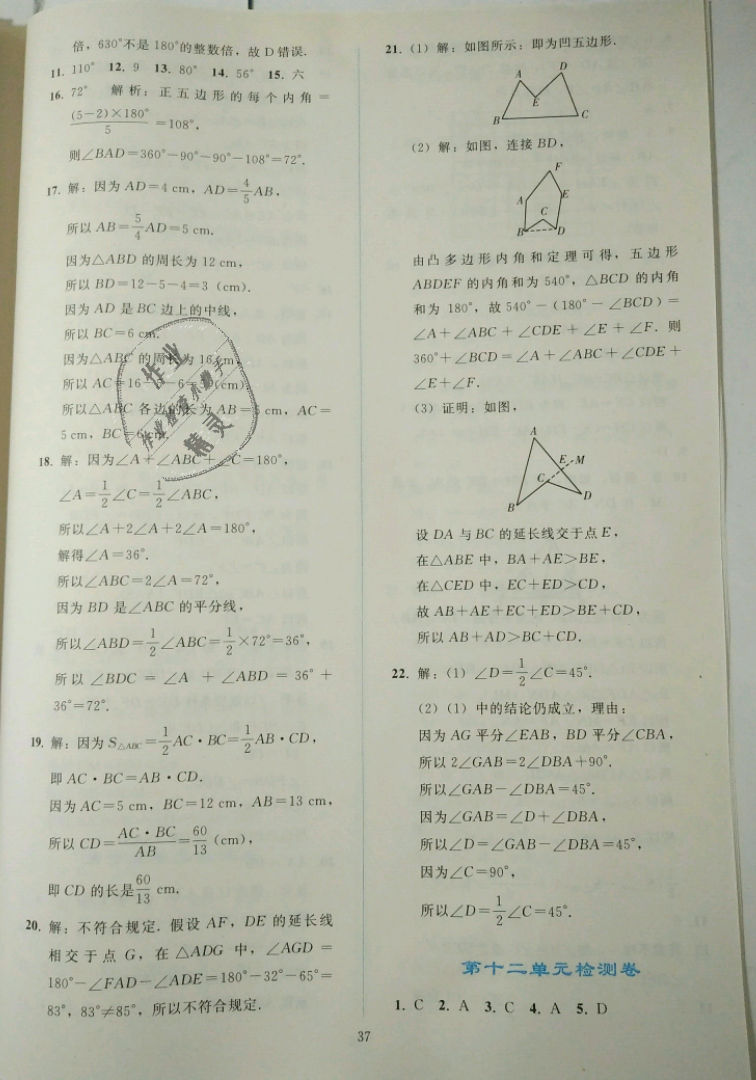 倍，630°不是 180°的整数倍，故 D 错误.
11. 110° 12. 9 13. 80° 14. 56° 15. 六
16. 72° 解析：正五边形的每个内角＝
(5－2)×180°/5＝108°，
则∠BAD＝360°－90°－90°－108°＝72°.
17. 解：因为 AD＝4 cm，AD＝4/5AB，
所以 AB＝5/4AD＝5 cm.
因为△ABD 的周长为 12 cm，
所以 BD＝12－5－4＝3（cm）.
因为 AD 是 BC 边上的中线，
所以 BC＝6 cm.
因为△ABC 的周长为 16 cm，
所以 AC＝16－ －6＝ （cm）.
所以△ABC 各边的长为 AB＝5 cm，AC＝
5 cm，BC＝6 cm.
18. 解：因为∠A＋∠ABC＋∠C＝180°，
∠A＝1/2∠C＝1/2∠ABC，
所以∠A＋2∠A＋2∠A＝180°，
解得∠A＝36°.
所以∠ABC＝2∠A＝72°，
因为 BD 是∠ABC 的平分线，
所以∠ABD＝1/2∠ABC＝1/2×72°＝36°，
所以∠BDC＝∠A＋∠ABD＝36°＋
36°＝72°.
19. 解：因为 S△ABC＝1/2AC·BC＝1/2AB·CD，
即 AC·BC＝AB·CD.
因为 AC＝5 cm，BC＝12 cm，AB＝13 cm，
所以 CD＝AC·BC/AB＝60/13（cm），
即 CD 的长是60/13 cm.
20. 解：不符合规定. 假设 AF，DE 的延长线
相交于点 G，在△ADG 中，∠AGD＝
180°－∠FAD－∠ADE＝180°－32°－65°＝
83°，83°≠85°，所以不符合规定.
作业
作业检查小助手
精灵
21.（1）解：如图所示：即为凹五边形.
A D
E
B C
（2）解：如图，连接 BD，
F
A E
C
B D
由凸多边形内角和定理可得，五边形
ABDEF 的内角和为 540°，△BCD 的内角
和为 180°，故 540°－（180°－∠BCD）＝
∠A＋∠ABC＋∠CDE＋∠E＋∠F. 则
360°＋∠BCD＝∠A＋∠ABC＋∠CDE＋
∠E＋∠F.
（3）证明：如图，
A
E M
C
B D
设 DA 与 BC 的延长线交于点 E，
在△ABE 中，BA＋AE＞BE，
在△CED 中，EC＋ED＞CD，
故 AB＋AE＋EC＋ED＞BE＋CD，
所以 AB＋AD＞BC＋CD.
22. 解：（1）∠D＝1/2∠C＝45°.
（2）（1）中的结论仍成立，理由：
因为 AG 平分∠EAB，BD 平分∠CBA，
所以 2∠GAB＝2∠DBA＋90°.
所以∠GAB－∠DBA＝45°.
因为∠GAB＝∠D＋∠DBA，
所以∠D＝∠GAB－∠DBA＝45°，
因为∠C＝90°，
所以∠D＝1/2∠C＝45°.
第十二单元检测卷
1. C 2. A 3. C 4. A 5. D
37